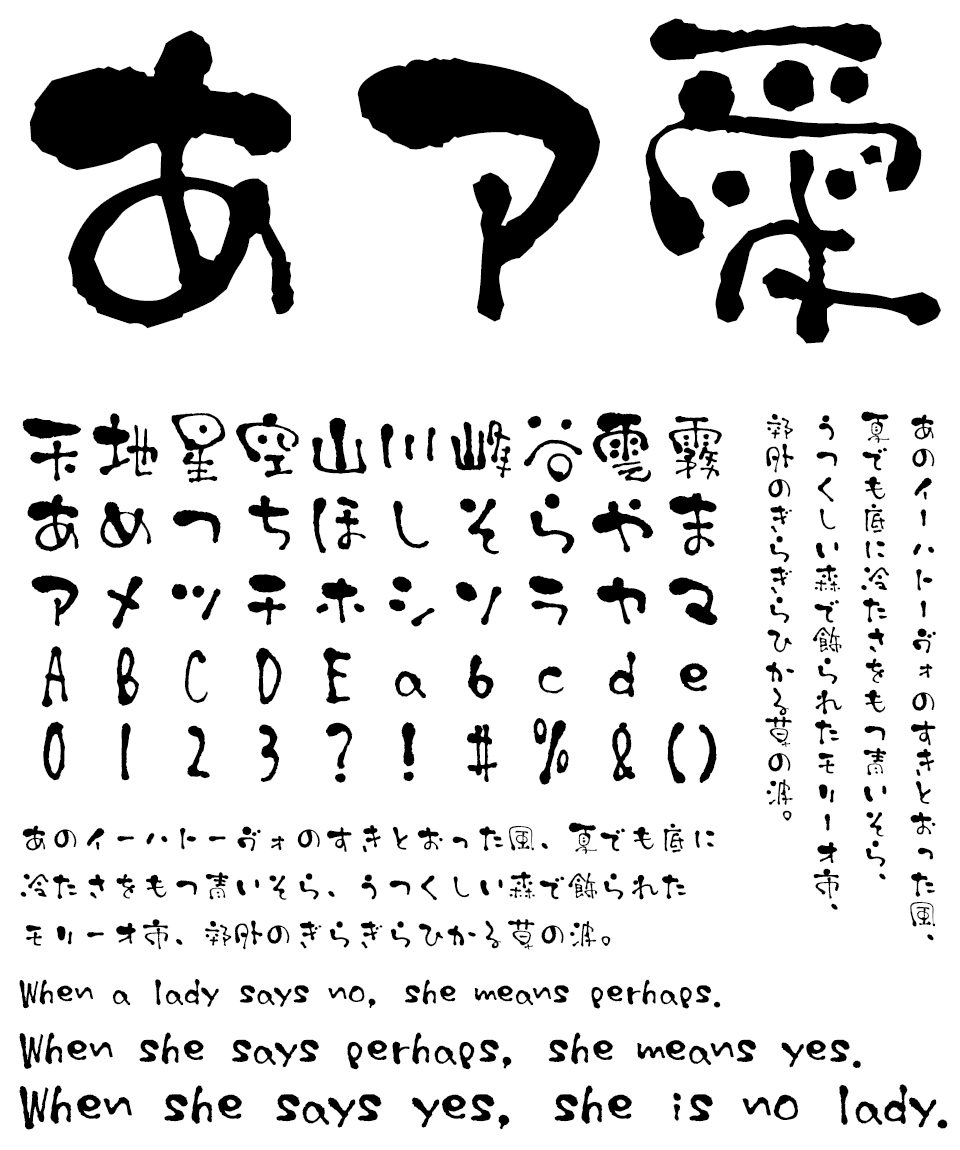 あア愛
天地星空山川峰谷雲霧
あめつちほしそらやま
アメツチホシソラヤマ
ABCDEabcde
0123?!#%&()
あのイーハトーヴォのすきとおった風、
夏でも底に冷たさをもつ青いそら、
うつくしい森で飾られたモリーオ市、
郊外のぎらぎらひかる草の波。
あのイーハトーヴォのすきとおった風、夏でも底に
冷たさをもつ青いそら、うつくしい森で飾られた
モリーオ市、郊外のぎらぎらひかる草の波。
When a lady says no, she means perhaps.
When she says perhaps, she means yes.
When she says yes, she is no lady.